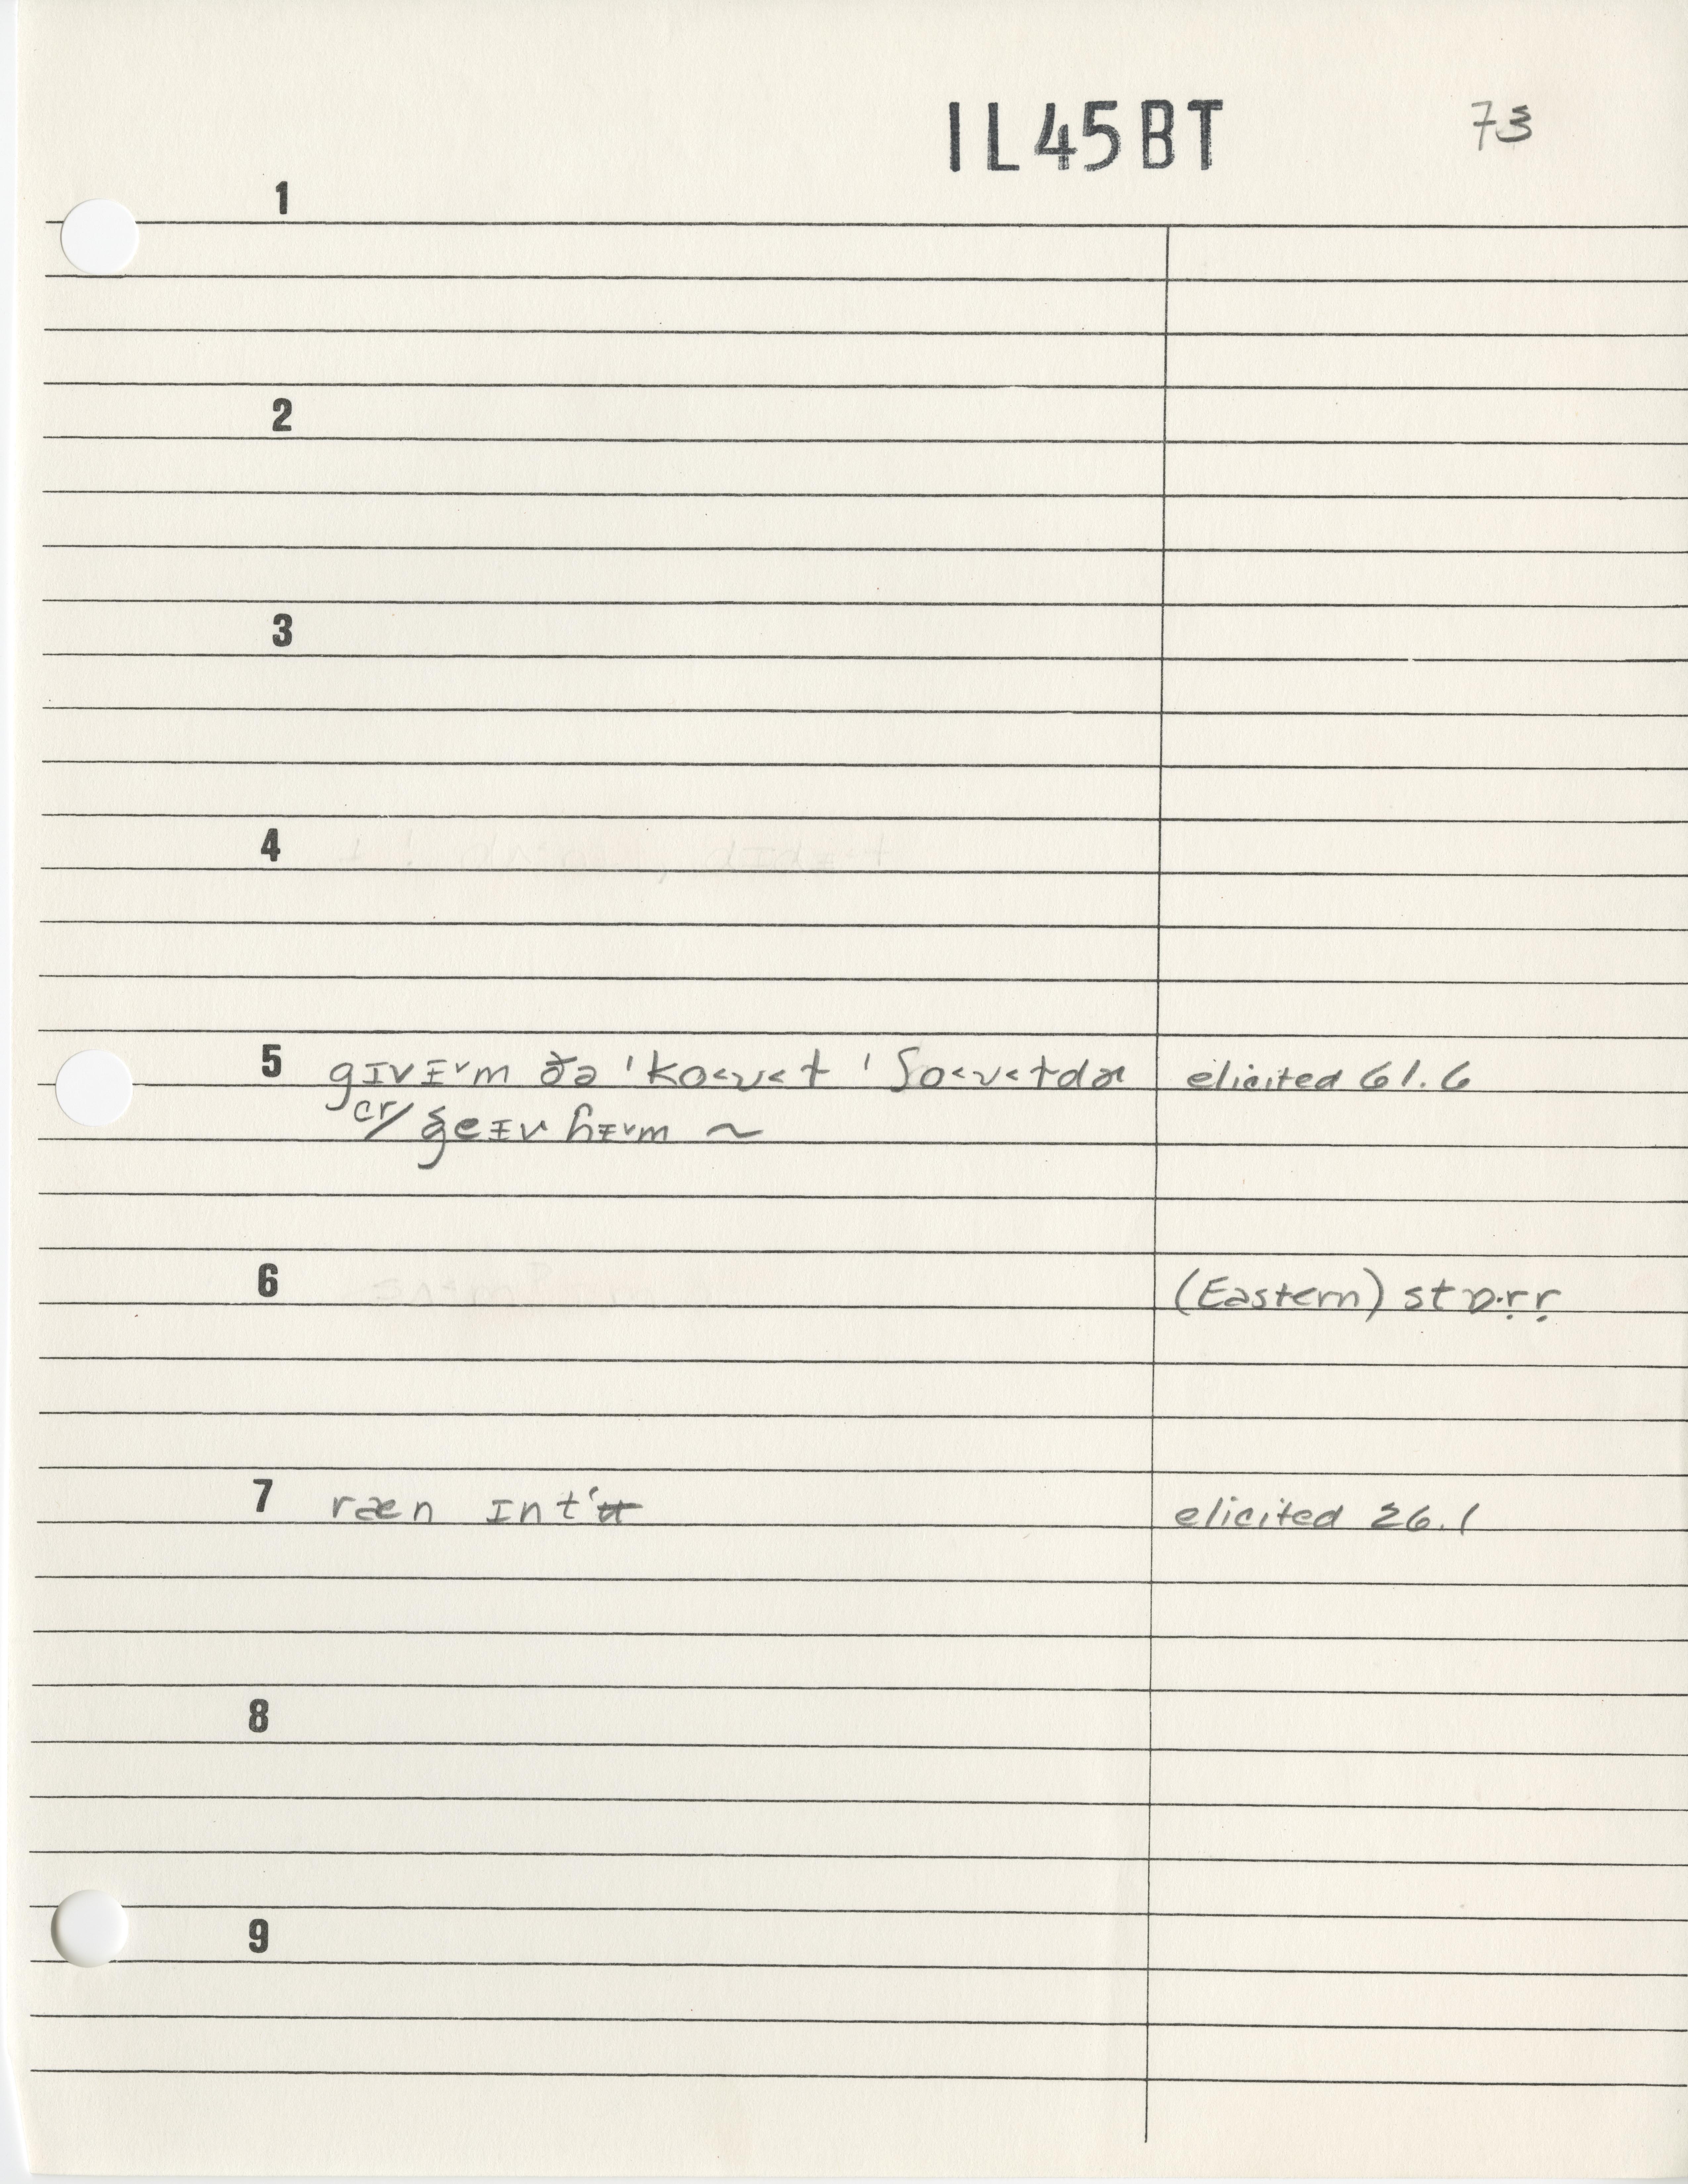 IL45BT 73
1
2
3
4
5 gɪvɪ̵˅m ðə ˈko˂ʊ˂t ˈʃo˂ʊ˂tdɚ elicited 61.6
cr/ g̨eɪ̵v hɪ̵˅m ~
6 (Eastern)
7 ræn ɪntʻʉ elicited 26.1
8
9